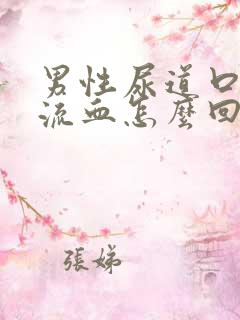 男性尿道口
流血怎麼回
張娣